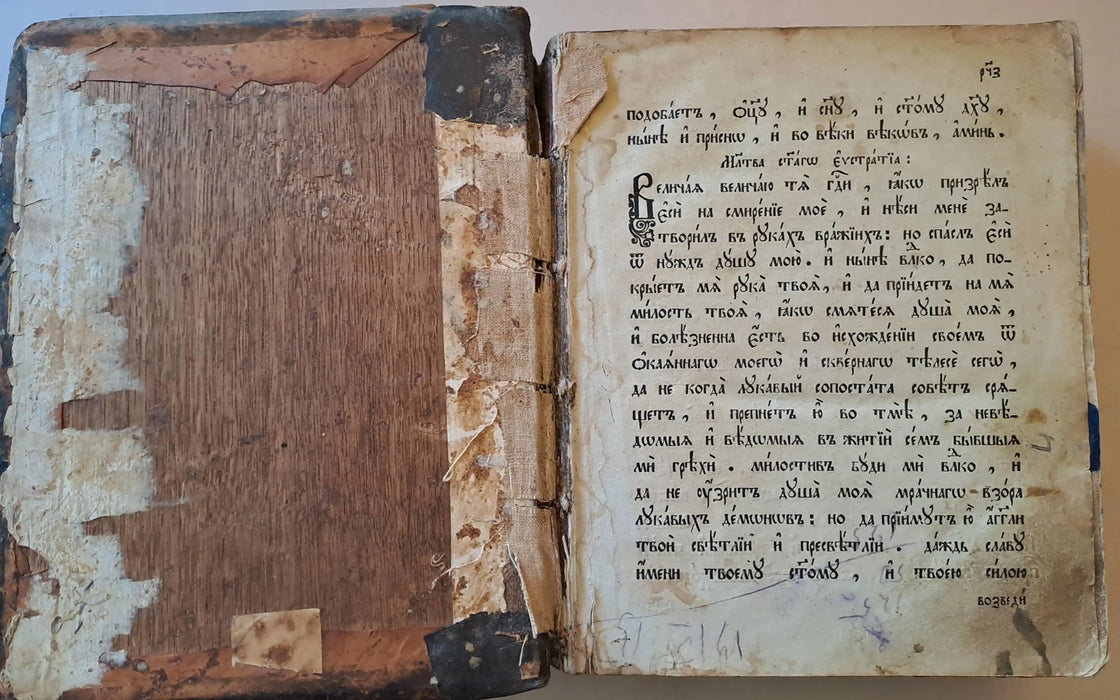 рч҃з
подоба́етъ , ѻ҆ц҃у̀ , и҆ сн҃у , и҆ ст҃о́му дх҃у ,
ны́нѣ и҆ при́снѡ , и҆ во вѣ́ки вѣкѡ́въ , а҆ми́нь .
Мл҃тва ст҃а́гѡ є҆ѵстра́тїа :
Велича́ѧ велича́ю тѧ̀ гд҇и , ꙗ҆́кѡ призрѣ́лъ
є҆сѝ на смире́нїе моѐ , и҆ нѣ́си менѐ за-
твори́лъ въ рꙋка́хъ вра́жїихъ : но спа́слъ є҆сѝ
ѿ нꙋ́ждъ дꙋ́шꙋ мою̀ . и҆ ны́нѣ влⷣко , да по-
кры́етъ мѧ̀ рꙋка̀ твоѧ̀ , и҆ да прїи́детъ на мѧ̀
ми́лость твоѧ̀ , ꙗ҆́кѡ смѧте́сѧ дꙋша̀ моѧ̀ ,
и҆ болѣ́зненна є҆́сть во и҆схожде́нїи свое́мъ ѿ
ѻ҆каѧ́ннагѡ моегѡ̀ и҆ скве́рнагѡ тѣлесѐ сегѡ̀ ,
да не когда̀ лꙋка́вый сопоста́та совѣ́тъ срѧ́-
щетъ , и҆ препне́тъ ю҆̀ во тмѣ̀ , за невѣ́-
дѡмыѧ и҆ вѣ́дѡмыѧ въ житїѝ се́мъ бы́вшыѧ
мѝ грѣхѝ . ми́лостивъ бꙋ́ди мѝ влⷣко , и҆
да не ᲂу҆́зритъ дꙋша̀ моѧ̀ мра́чнагѡ взо́ра
лꙋка́выхъ де́мѡнѡвъ : но да прїи́мꙋтъ ю҆̀ а҆́гг҃ли
твоѝ свѣ́тлїи и҆ пресвѣ́тлїи . да́ждь сла́вꙋ
и҆́мени твоемꙋ̀ ст҃о́мꙋ , и҆ твое́ю си́лою
возведѝ